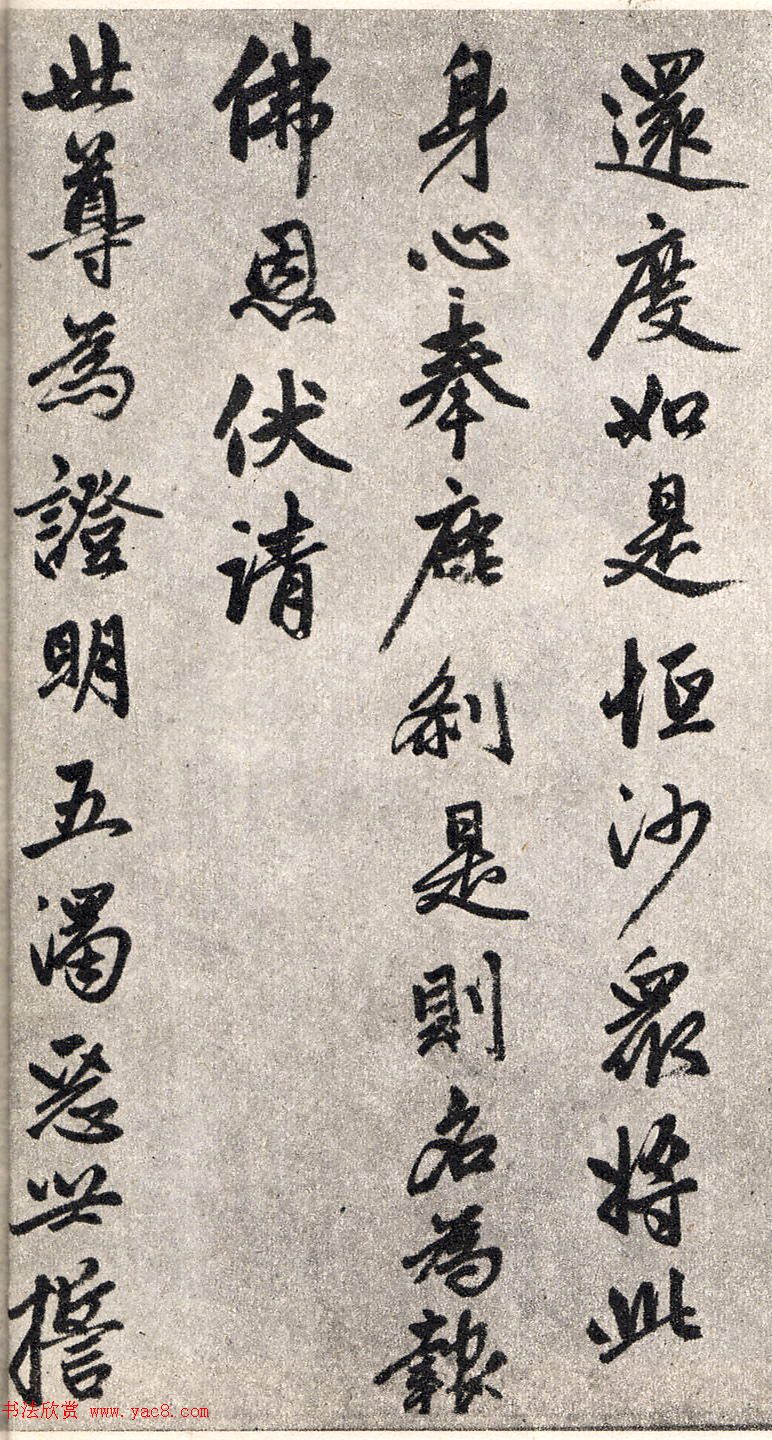 還度如是恒沙眾將此
身心奉塵剎是則名為報
佛恩伏请
世尊為證明五濁惡世誓
书法欣赏 www.yac8.com